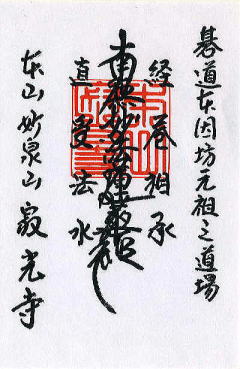 碁道本因坊元祖之道場
経巻相承
南無妙法蓮華経
直受法水
本山妙泉山寂光寺